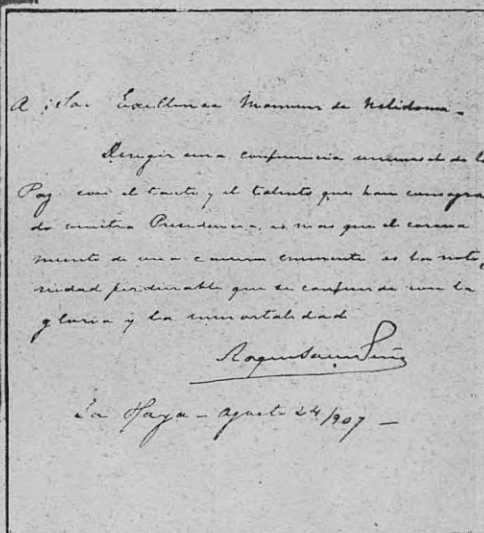 A Son Excellence Monsieur de Nelidow -
Dirigir una conferencia universal de la
Paz con el tacto y el talento que han consagra
do vuestra Presidencia, es mas que el corona
miento de una carrera eminente es la noto
riedad perdurable que se confunde con la
gloria y la inmortalidad
Roque Saenz Peña
La Haya - agosto 24/907 -